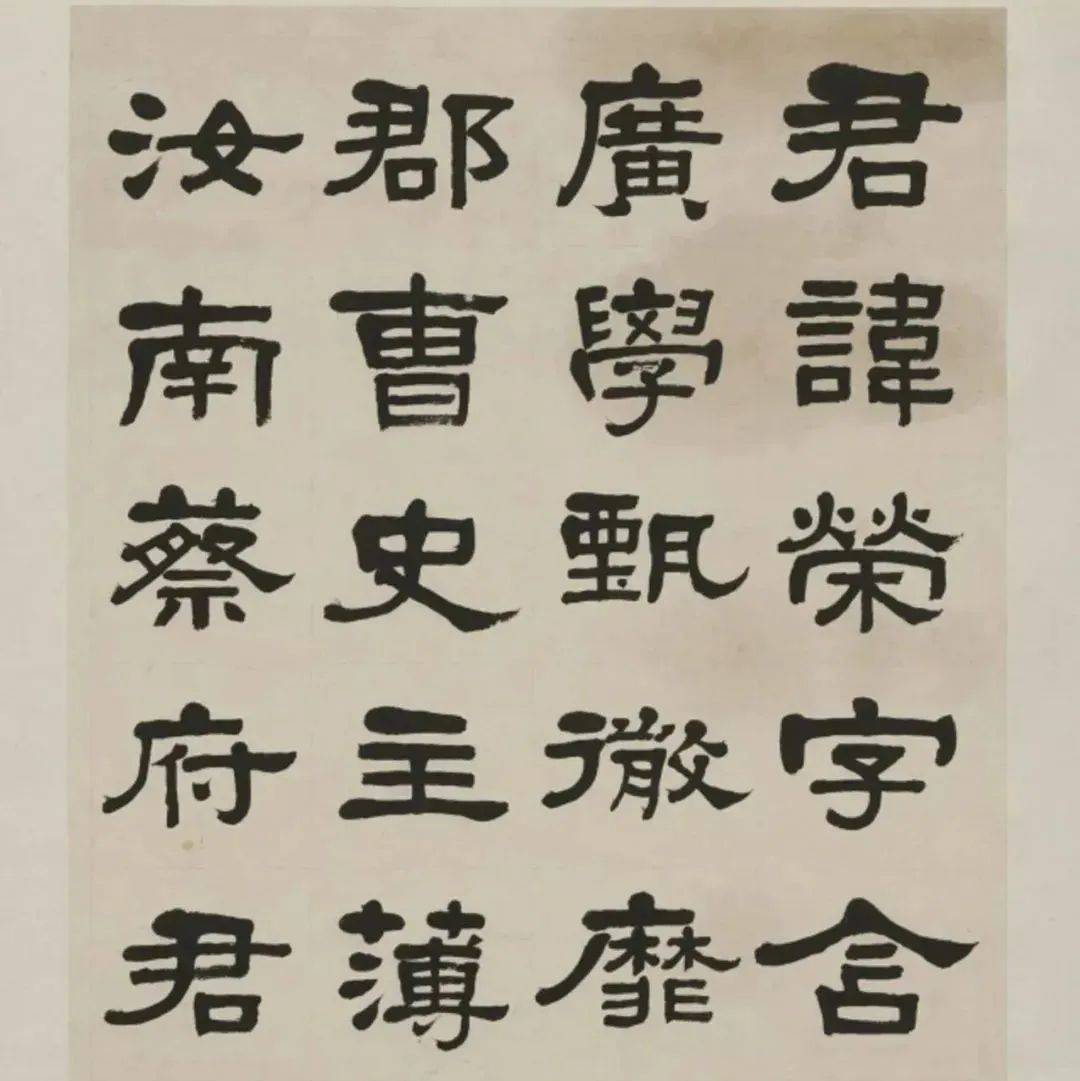 君諱榮字含
廣學甄徹靡
郡曹史主薄
汝南蔡府君